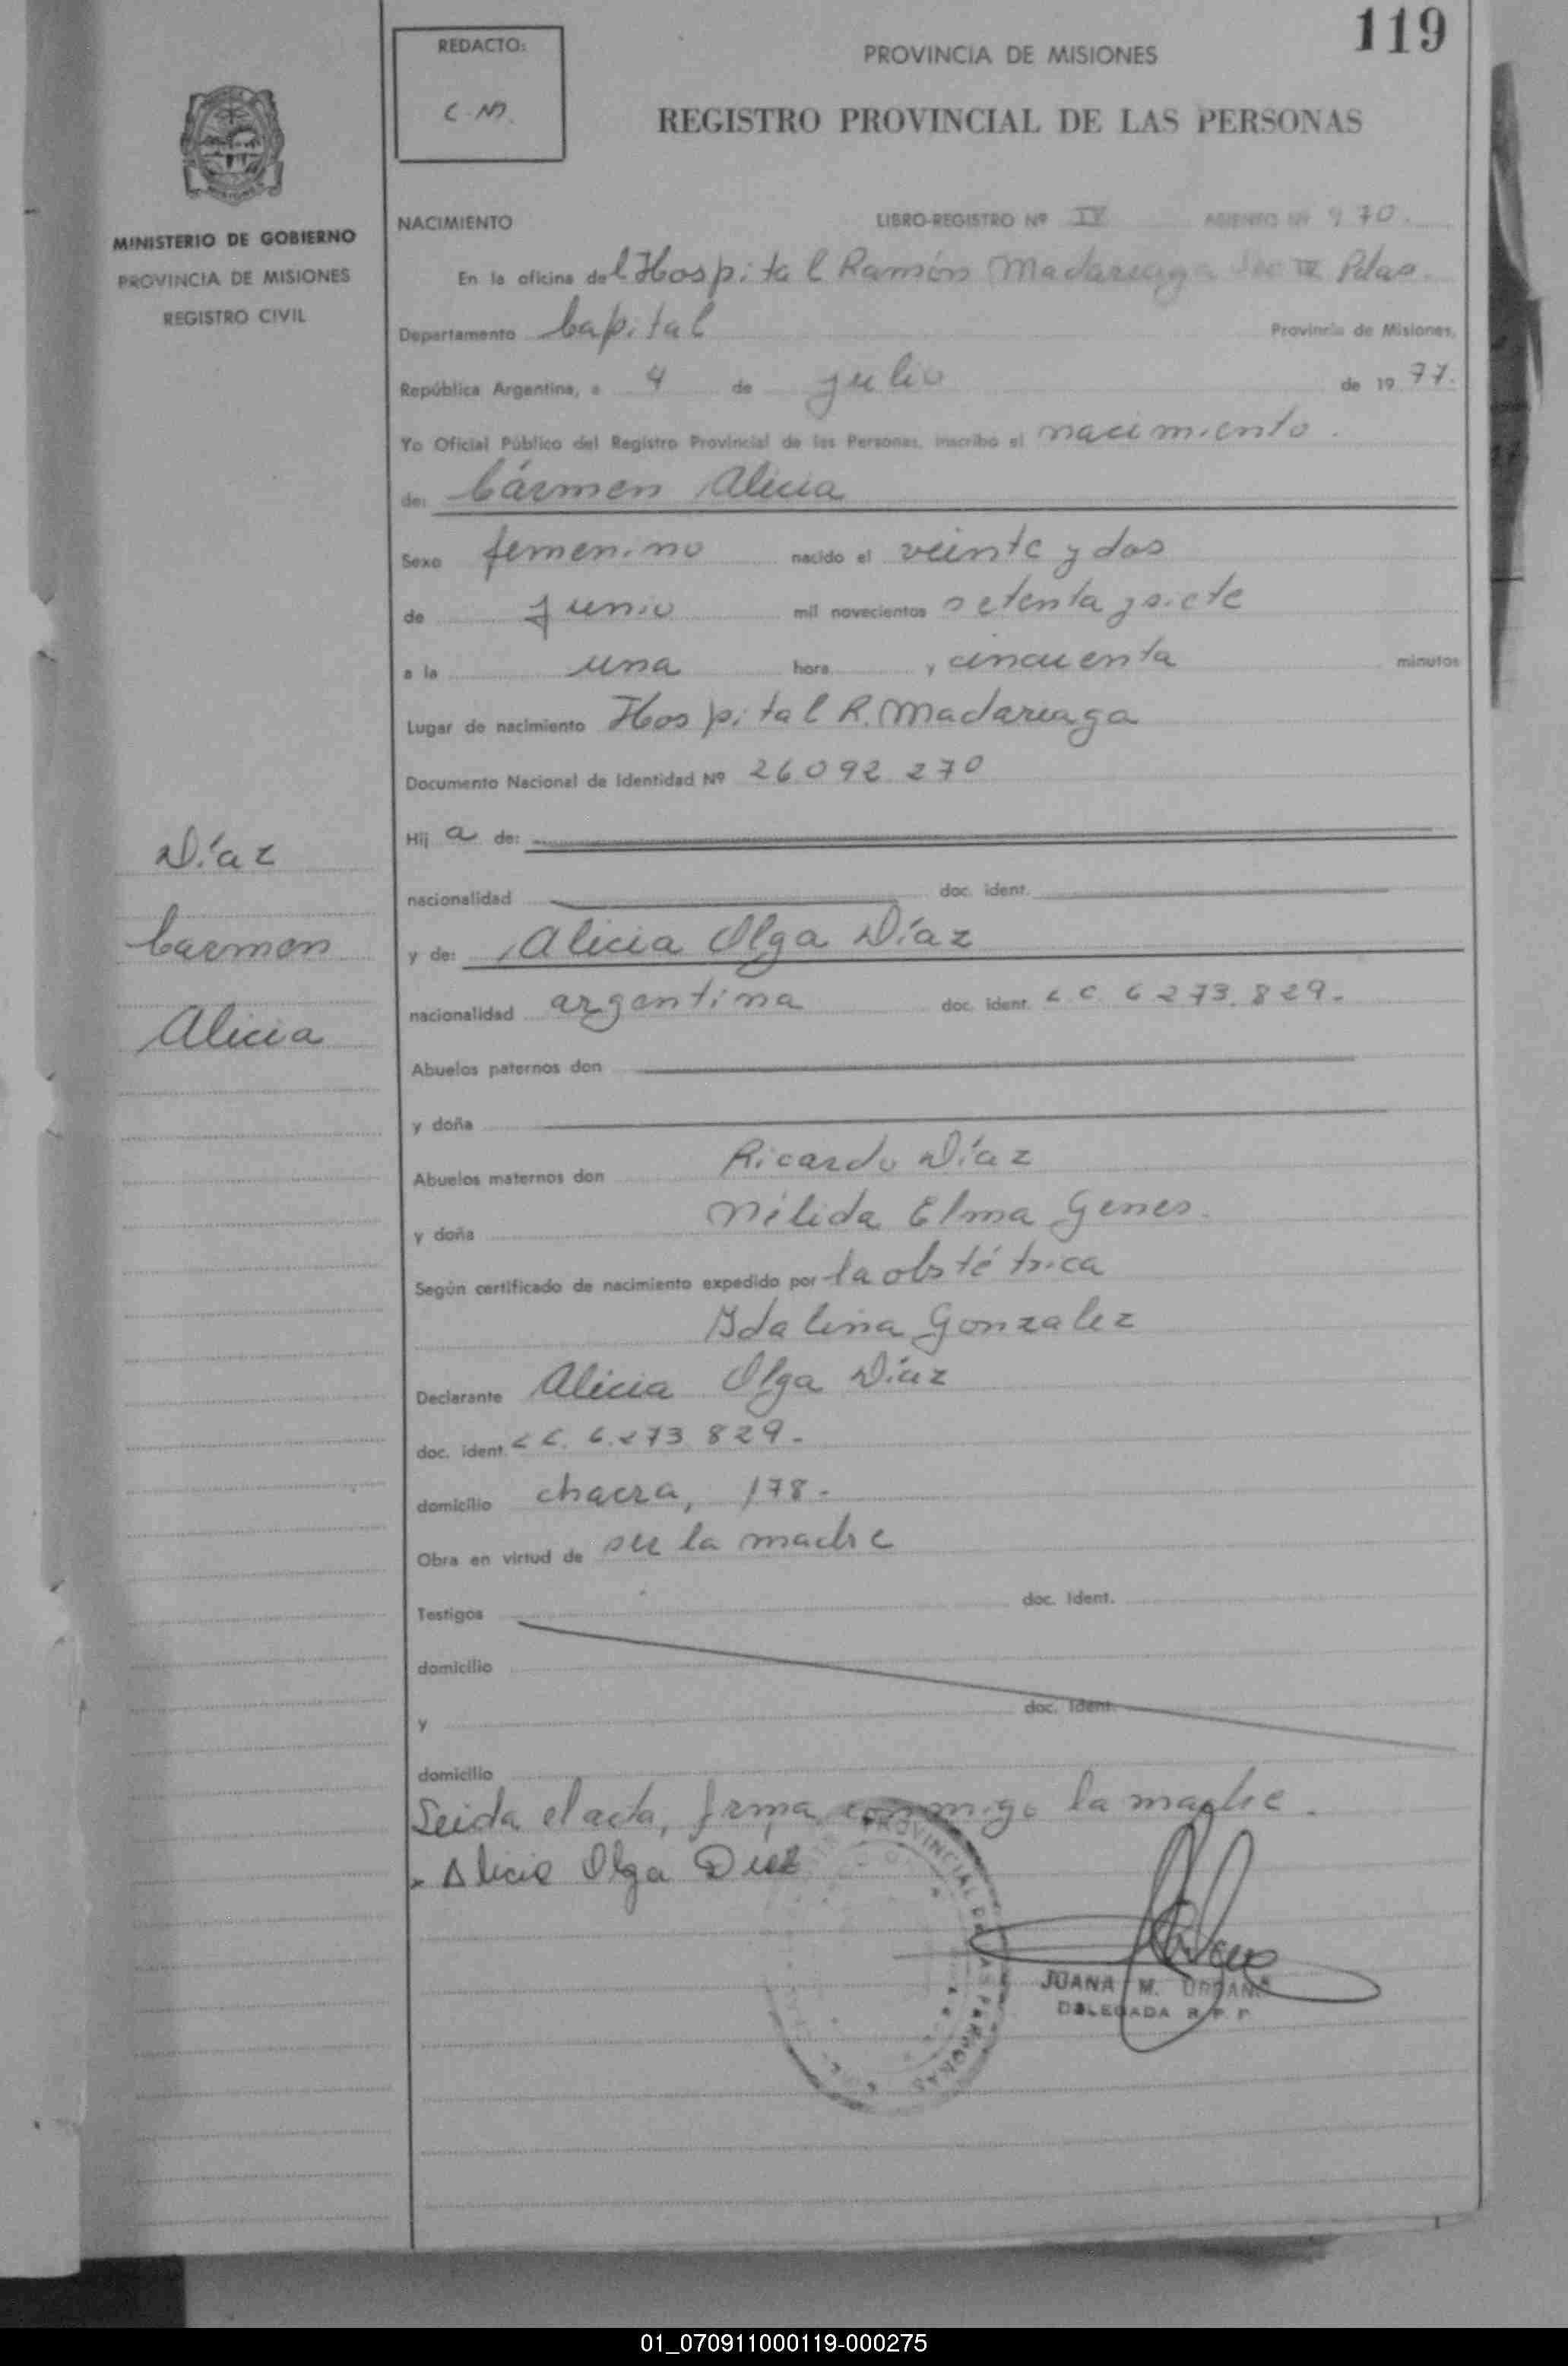 119
REDACTO:
C. M.
PROVINCIA DE MISIONES
REGISTRO PROVINCIAL DE LAS PERSONAS
MINISTERIO DE GOBIERNO
PROVINCIA DE MISIONES
REGISTRO CIVIL
NACIMIENTO LIBRO-REGISTRO Nº IV ASIENTO Nº 970.
En la oficina del Hospital Ramón Madariaga Sec IV Pdas.
Departamento Capital Provincia de Misiones,
República Argentina, a 4 de julio de 1977.
Yo Oficial Público del Registro Provincial de las Personas, inscribo el nacimiento.
de: Cármen Alicia
Sexo femenino nacido el veinte y dos
de junio mil novecientos setenta y siete
a la una hora y cincuenta minutos
Lugar de nacimiento Hospital R. Madariaga
Documento Nacional de Identidad Nº 26.092.270
Hij a de:
nacionalidad doc. ident.
y de: Alicia Olga Díaz
nacionalidad argentina doc. ident. L C. 6.273.829.
Abuelos paternos don
y doña
Abuelos maternos don Ricardo Díaz
y doña Nélida Elma Genes.
Según certificado de nacimiento expedido por la obstétrica
Idalina Gonzalez
Declarante Alicia Olga Díaz
doc. ident. L C. 6.273.829.
domicilio chacra, 178.
Obra en virtud de ser la madre
Testigos doc. ident.
domicilio
y doc. ident.
domicilio
Leida el acta, firma conmigo la madre.
Alicia Olga Diaz
Díaz
Carmen
Alicia
PROVINCIAL DE LAS PERSONAS
JUANA M.
DELEGADA R. P. P.
01_070911000119-000275